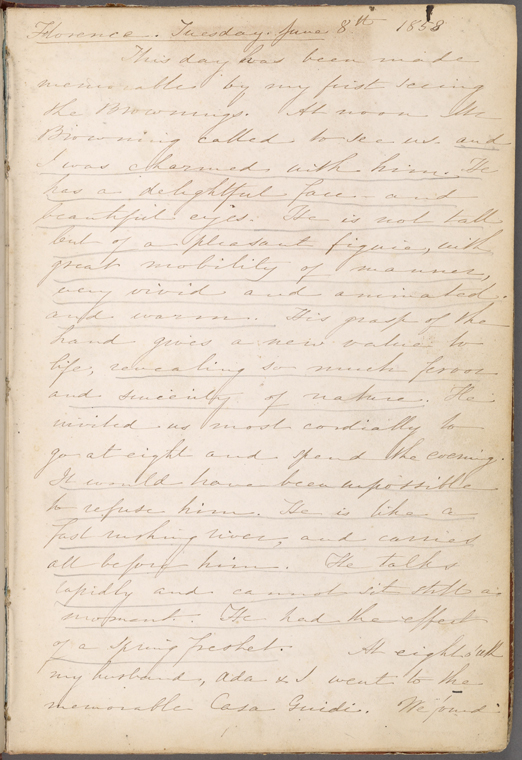 Florence. Tuesday. June 8th 1858
This day has been made
memorable by my first seeing
the Brownings. At noon Mr
Browning called to see us and
I was charmed with him. He
has a delightful face and
beautiful eyes. He is not tall
but of a pleasant figure, with
great mobility of manner,
very vivid and animated.
and warm. His grasp of the
hand gives a new value to
life, revealing so much fervor
and sincerity of nature. He
invited us most cordially to
go at eight and spend the evening.
It would have been impossible
to refuse him. He is like a
fast rushing river, and carries
all before him. He talks
rapidly and cannot sit still a
moment. He had the effect
of a spring freshet. At eight with
my husband, Ada & I went to the
memorable Casa Guidi. We found